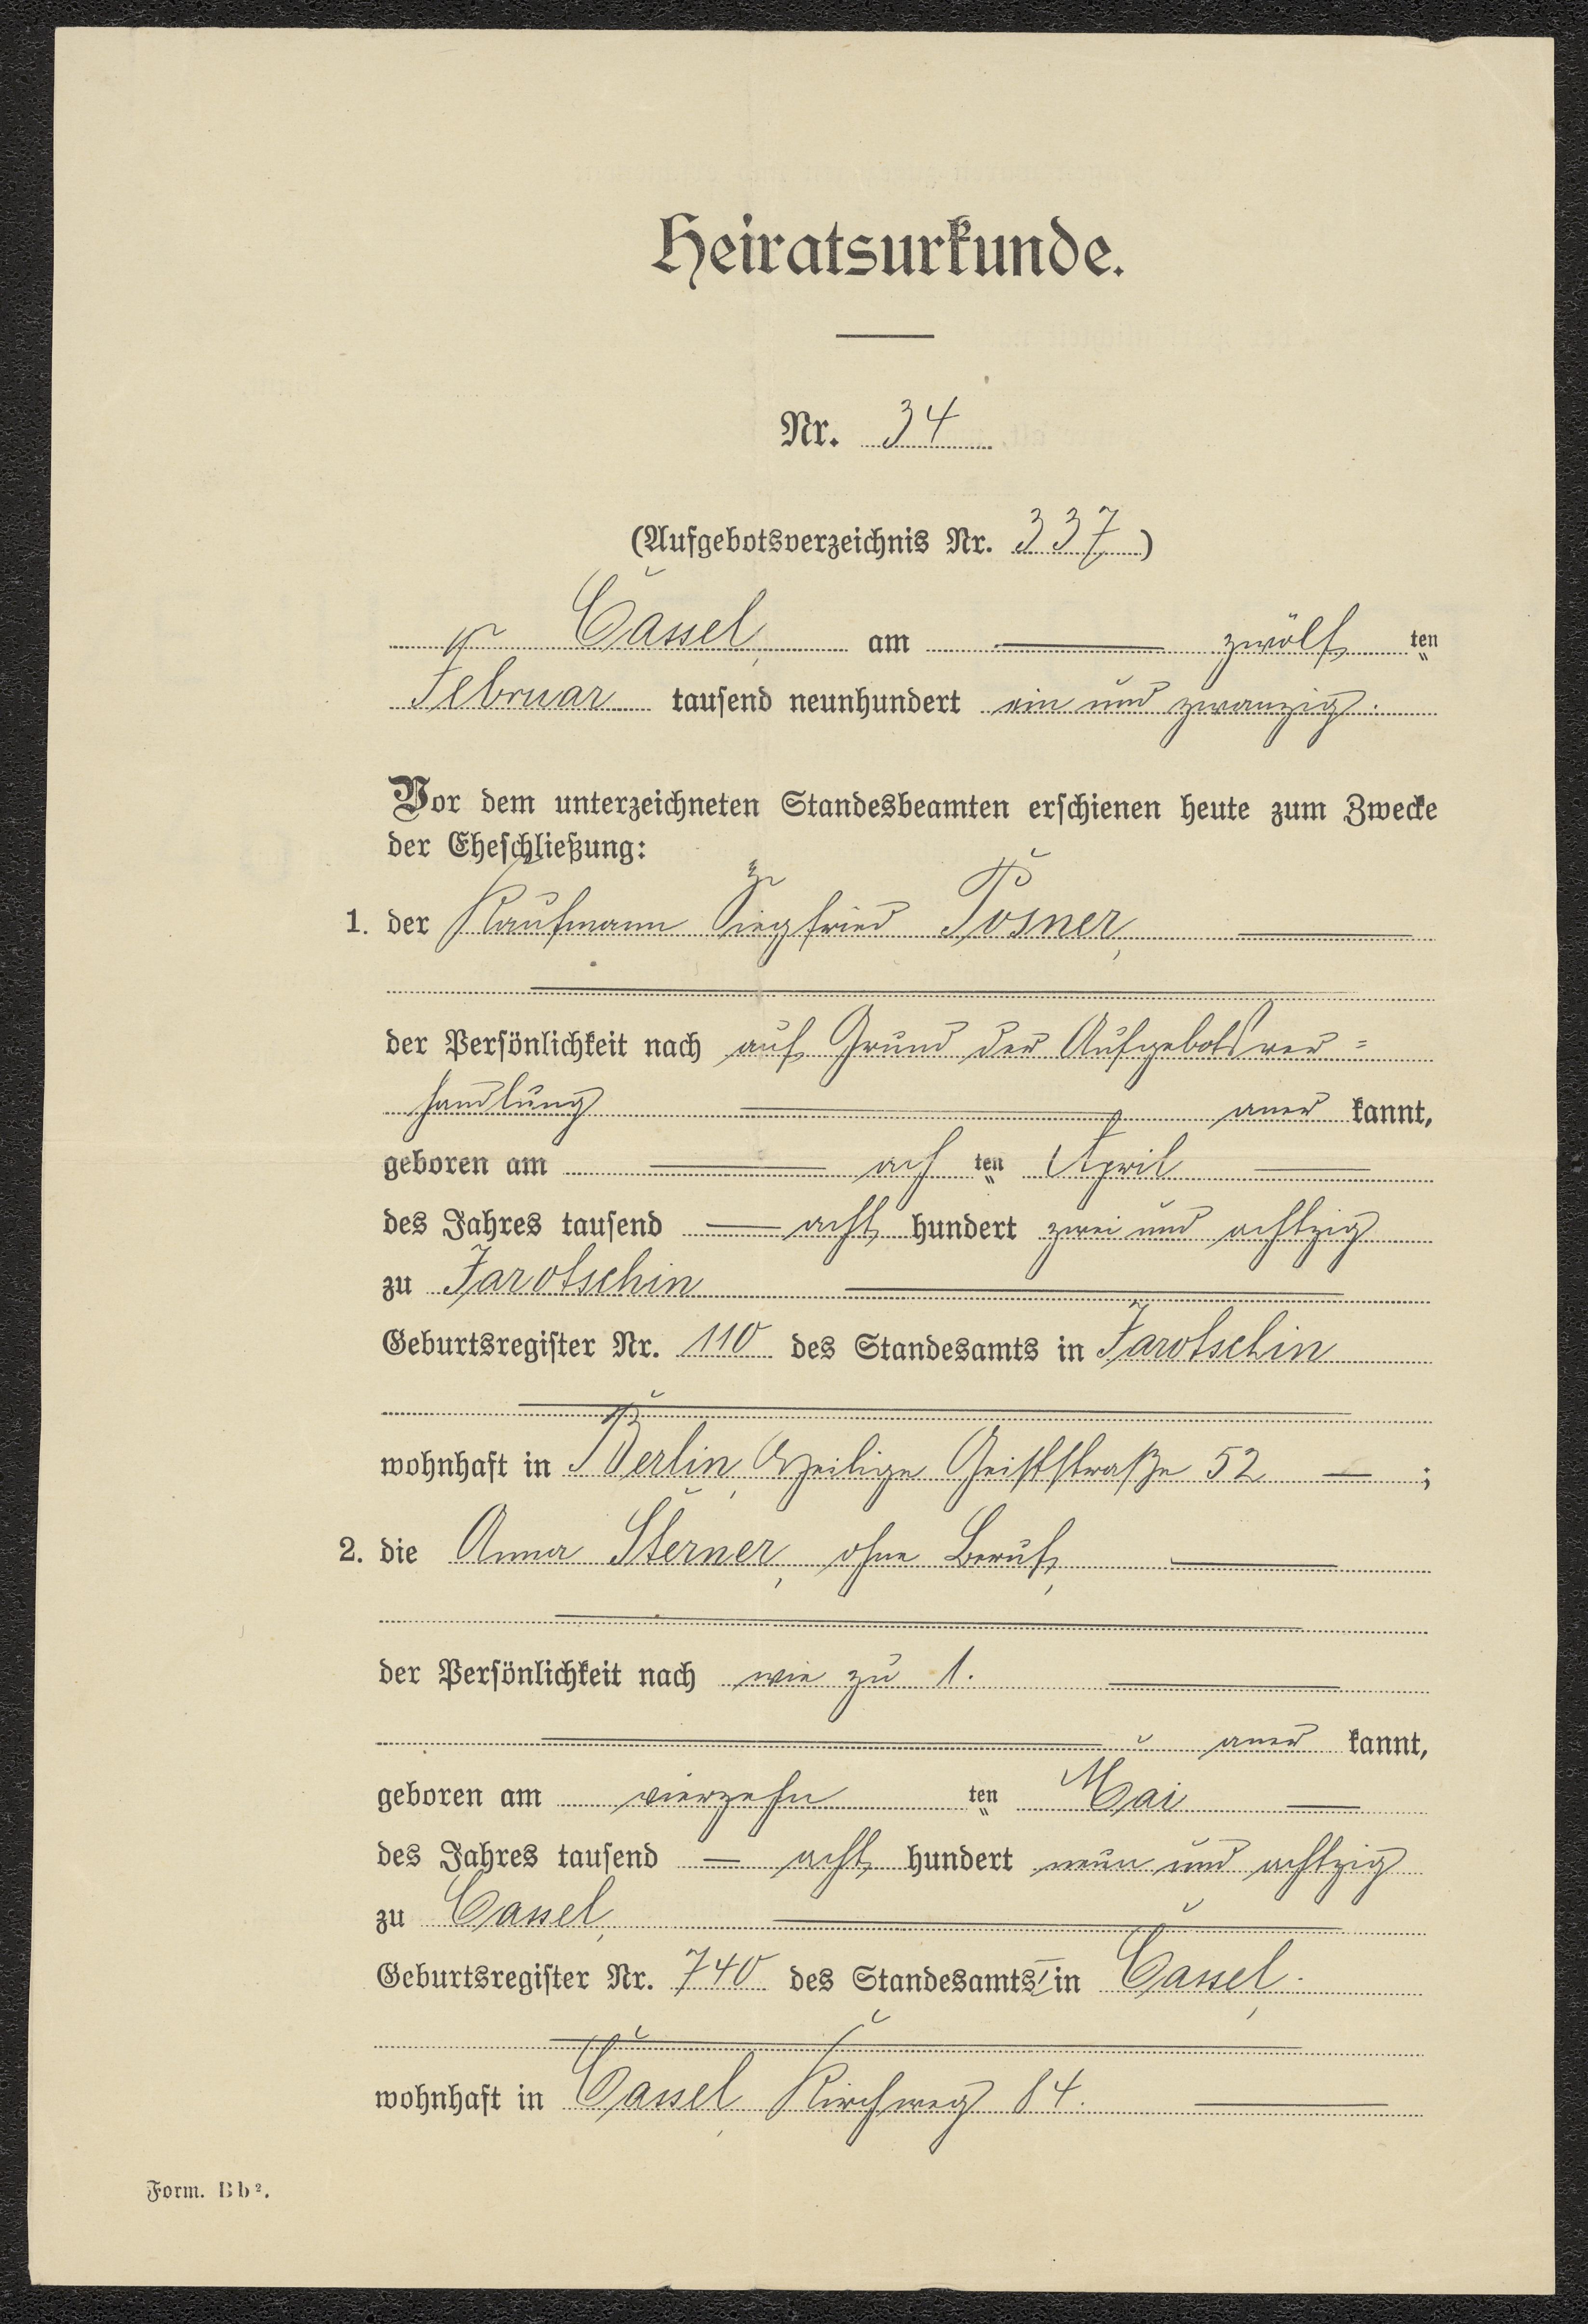 Heiratsurkunde.
Nr. 34
(Aufgebotsverzeichnis Nr. 337)
Cassel, am zwölf ten
Februar tausend neunhundert ein und zwanzig.
Vor dem unterzeichneten Standesbeamten erschienen heute zum Zwecke
der Eheschließung:
1. der Kaufmann Siegfried Posner,
der Persönlichkeit nach auf Grund der Aufgebotsver=
handlung aner kannt,
geboren am ach ten April
des Jahres tausend acht hundert zwei und achtzig
zu Jarotschin
Geburtsregister Nr. 110 des Standesamts in Jarotschin
wohnhaft in Berlin, Heilige Geiststraße 52 ;
2. die Anna Sterner, ohne Beruf,
der Persönlichkeit nach wie zu 1.
aner kannt,
geboren am vierzehn ten Mai
des Jahres tausend acht hundert neun und achtzig
zu Cassel,
Geburtsregister Nr. 740 des Standesamts I in Cassel.
wohnhaft in Cassel, Kirchweg 84.
Form. Bb².